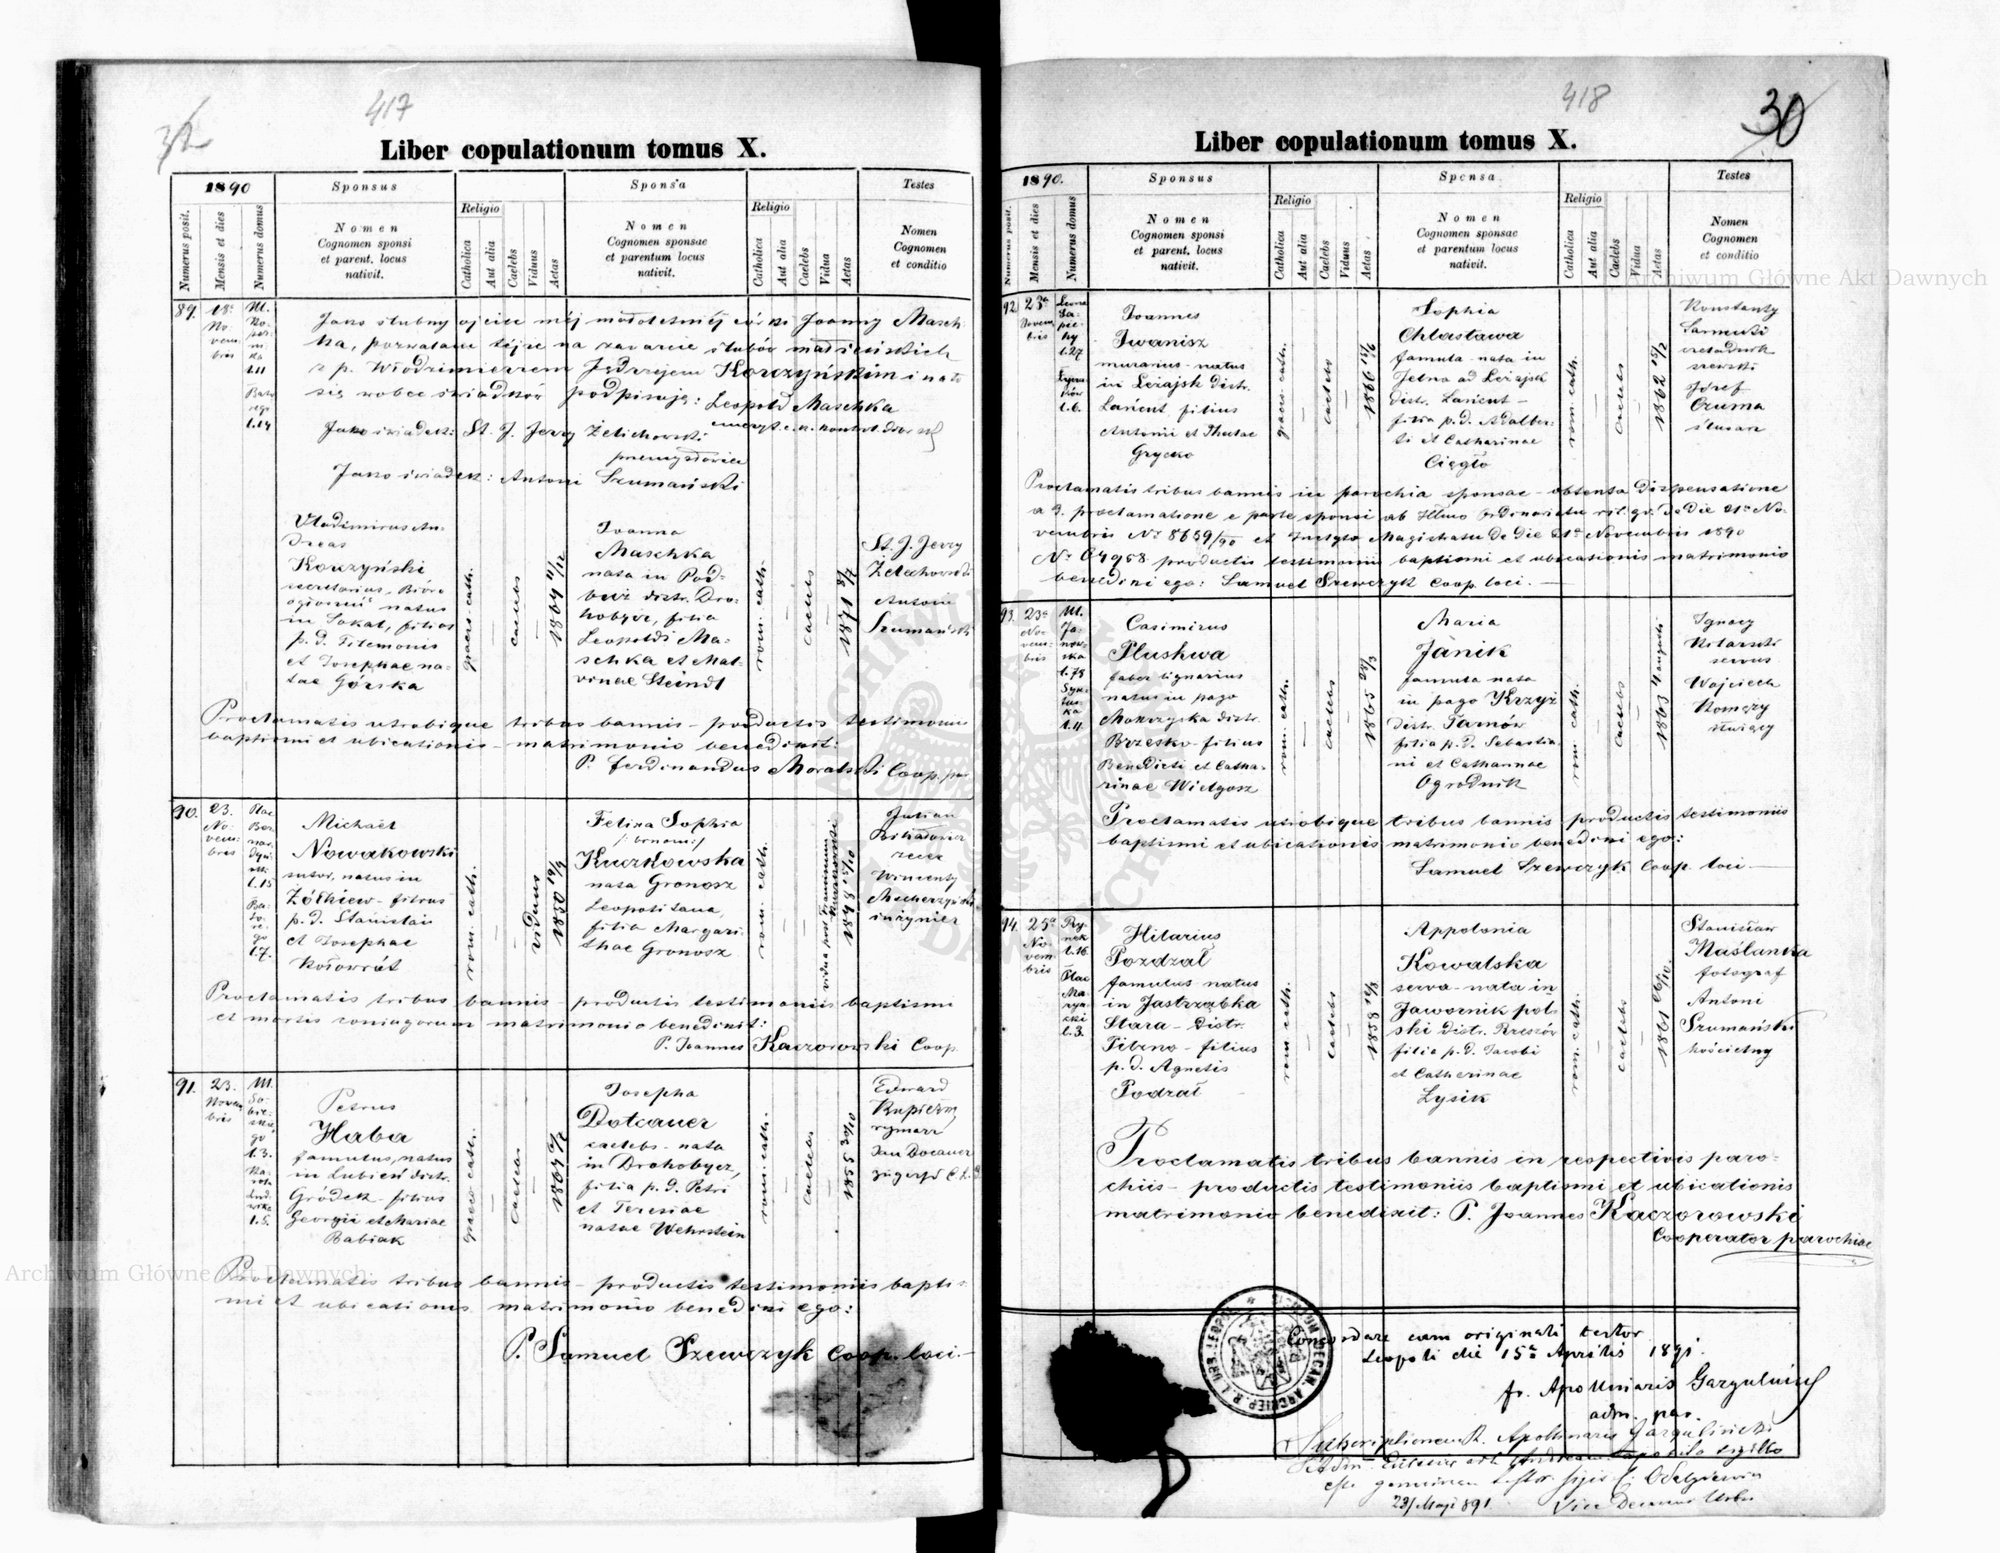 417
Liber copulationum tomus X.
1890
Sponsus
Sponsa
Testes
Numerus posit.
Mensis et dies
Numerus domus
Nomen
Cognomen sponsi
et parent. locus
nativit.
Religio
Catholica
Aut alia
Caelebs
Viduus
Aetas
Nomen
Cognomen sponsae
et parentum locus
nativit.
Religio
Catholica
Aut alia
Caelebs
Vidua
Aetas
Nomen
Cognomen
et conditio
89.
18a
No-
vem-
bris
Jako ślubny ojciec mej małoletniej córki Joanny Masch-
ka, pozwalam tejże na zawarcie ślubów małżeńskich
z p. Włodzimierzem Jędrzejem Korczyńskim i
się wobec świadków podpisuję: Leopold Maschka
Jako świadek: St. J. Jerzy Żelichowski
Jako świadek: Antoni Szumański
Vladimirus An-
dreas
Korczyński
secretarius
natus
in Sokal, filius
p. d. Filemonis
et Josephae na-
tae Górska
graeco cath.
caelebs
1864
Joanna
Maschka
nata in Pod-
buż distr. Dro-
hobycz, filia
Leopoldi Ma-
schka et Mal-
vinae Steindl
rom. cath.
caelebs
1871
St. J. Jerzy
Żelechowski
Antoni
Szumański
Proclamatis utrobique tribus bannis – productis testimoniis
baptismi et ubicationis – matrimonio benedixit:
P. Ferdinandus Moralski Coop. par
90.
23.
No-
vem-
bris
Plac
Ber-
nar-
dyń-
ski
l.15
Ba-
to-
re-
go
l.7.
Michael
Nowakowski
sutor, natus in
Żółkiew – filius
p. d. Stanislai
et Josephae
Kołowrót
rom. cath.
viduus
1850
Felixa Sophia
Kuczkowska
nata Gronosz
Leopolitana,
filia Margari-
thae Gronosz
rom. cath.
1848 15/10
Julian
Wincenty
inżynier
Proclamatis tribus bannis – productis testimoniis baptismi
et mortis coniugorum matrimonio benedixit:
P. Joannes Kaczorowski Coop.
91.
23.
Novem-
bris
M.
So-
bie-
skie-
go
l.3.
Petrus
Haba
famulus, natus
in Lubień distr.
Gródek – filius
Georgii et Mariae
Babiak
graeco cath.
caelebs
1864
Josepha
Dotzauer
caelebs – nata
in Drohobycz,
filia p. d. Petri
et Teresiae
natae Wehrstein
rom. cath.
caelebs
Edward
rymarz
Jan Docauer
Proclamatis tribus bannis – productis testimoniis bapti-
mi et ubicationis matrimonio benedixi ego:
P. Samuel Szewczyk Coop. loci.
418
30
Liber copulationum tomus X.
1890.
Sponsus
Sponsa
Testes
Numerus posit.
Mensis et dies
Numerus domus
Nomen
Cognomen sponsi
et parent. locus
nativit.
Religio
Catholica
Aut alia
Caelebs
Viduus
Aetas
Nomen
Cognomen sponsae
et parentum locus
nativit.
Religio
Catholica
Aut alia
Caelebs
Vidua
Aetas
Nomen
Cognomen
et conditio
92.
23a
Novem-
bris
Leona
Sa-
pie-
hy
l.27
l.6.
Joannes
Iwanisz
murarius – natus
in Leżajsk distr.
Łańcut, filius
Antonii et Theclae
Grycko
graeco cath.
caelebs
1866
Sophia
Chlastawa
famula – nata in
Jelna ad Leżajsk
distr. Łańcut –
filia p. d. Adalber-
ti et Catharinae
Cięgło
rom. cath.
caelebs
1862 15/2
Konstanty
czeladnik
szewski
Józef
Czuma
ślusarz
Proclamatis tribus bannis in parochia sponsae – obtenta dispensatione
a 3. proclamatione e parte sponsi ab Illmo Ordinariatu rit. gr. de die 21a No-
vembris No 8659/90 et Inclyto Magistratu de die 21a Novembris 1890
No 64958 productis testimoniis baptismi et ubicationis matrimonio
benedixi ego: Samuel Szewczyk Coop. loci.
93.
23a
No-
vem-
bris
M.
Ja-
now-
ska
l.78
Casimirus
Pluskwa
faber lignarius
natus in pago
Mokrzyska distr.
Brzesko – filius
Benedicti et Catha-
rinae Wielgosz
rom. cath.
caelebs
1865
Maria
Janik
famula nata
in pago Krzyż
distr. Tarnów
filia p. d. Sebastia-
ni et Catharinae
Ogrodnik
rom. cath.
caelebs
1863 4 augusti
Ignacy
servus
Wojciech
Proclamatis utrobique tribus bannis productis testimoniis
baptismi et ubicationis matrimonio benedixi ego:
Samuel Szewczyk Coop. loci
94.
25a
No-
vem-
bris
Ry-
nek
l.16.
Plac
Ma-
ryac-
ki
l.3.
Hilarius
Pozdzał
famulus natus
in Jastrząbka
Stara – distr.
Pilzno – filius
p. d. Agnetis
Podzał
rom. cath.
caelebs
1858
Appolonia
Kowalska
serva – nata in
Jawornik pol-
ski distr. Rzeszów
filia p. d. Jacobi
et Catherinae
Łysik
rom. cath.
caelebs
1861 26/10.
Stanisław
Maślanka
fotograf
Antoni
Szumański
kościelny
Proclamatis tribus bannis in respectivis paro-
chiis – productis testimoniis baptismi et ubicationis
matrimonio benedixit: P. Joannes Kaczorowski
Cooperator parochiae
Concordare cum originali testor
Leopoli die 15a Aprilis 1891.
fr. Apollinaris Gargulński
adm. par.
Subscriptionem R. Apollinaris Gargulinski
23/Maji 891
Vice Decanus Urbis
Archiwum Główne Akt Dawnych
Archiwum Główne Akt Dawnych